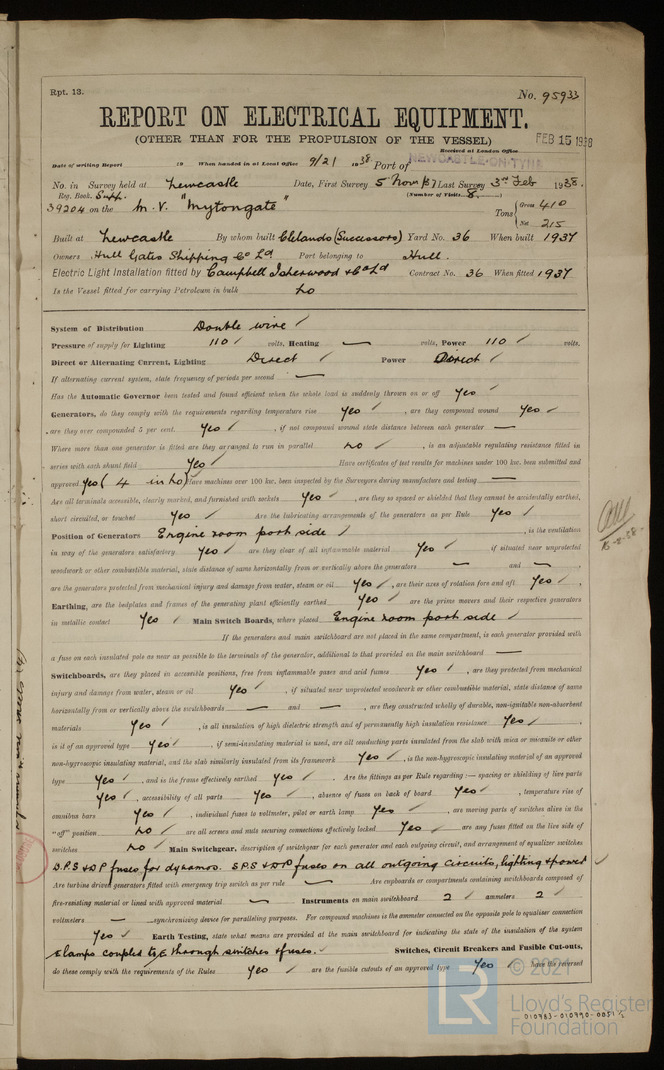 Rpt. 13.
No. 95933
REPORT ON ELECTRICAL EQUIPMENT.
(OTHER THAN FOR THE PROPULSION OF THE VESSEL)
FEB 15 1938
Received at London Office
Date of writing Report 19 When handed in at Local Office 9/2/ 1938 Port of NEWCASTLE-ON-TYNE
No. in Survey held at Newcastle Date, First Survey 5 Nov (37) Last Survey 3rd Feb 1938.
Reg. Book. Supp. (Number of Visits 8)
39204 on the M.V. "Mytongate" Tons { Gross 410
Net 215
Built at Newcastle By whom built Clelands (Successors) Yard No. 36 When built 1937
Owners Hull Gates Shipping Co Ld Port belonging to Hull.
Electric Light Installation fitted by Campbell Isherwood & Co Ld Contract No. 36 When fitted 1937
Is the Vessel fitted for carrying Petroleum in bulk no
System of Distribution Double wire /
Pressure of supply for Lighting 110 / volts, Heating — volts, Power 110 / volts.
Direct or Alternating Current, Lighting Direct / Power Direct /
If alternating current system, state frequency of periods per second —
Has the Automatic Governor been tested and found efficient when the whole load is suddenly thrown on or off Yes /
Generators, do they comply with the requirements regarding temperature rise Yes / , are they compound wound Yes /
, are they over compounded 5 per cent. Yes / , if not compound wound state distance between each generator —
Where more than one generator is fitted are they arranged to run in parallel no / , is an adjustable regulating resistance fitted in
series with each shunt field Yes / Have certificates of test results for machines under 100 kw. been submitted and
approved Yes (4 in No) Have machines over 100 kw. been inspected by the Surveyors during manufacture and testing —
Are all terminals accessible, clearly marked, and furnished with sockets Yes / , are they so spaced or shielded that they cannot be accidentally earthed,
short circuited, or touched Yes / Are the lubricating arrangements of the generators as per Rule Yes /
Position of Generators Engine room port side / , is the ventilation
in way of the generators satisfactory Yes / are they clear of all inflammable material Yes / if situated near unprotected
woodwork or other combustible material, state distance of same horizontally from or vertically above the generators — and — ,
are the generators protected from mechanical injury and damage from water, steam or oil Yes / , are their axes of rotation fore and aft Yes / ,
Earthing, are the bedplates and frames of the generating plant efficiently earthed Yes / are the prime movers and their respective generators
in metallic contact Yes / Main Switch Boards, where placed Engine room port side /
If the generators and main switchboard are not placed in the same compartment, is each generator provided with
a fuse on each insulated pole as near as possible to the terminals of the generator, additional to that provided on the main switchboard —
Switchboards, are they placed in accessible positions, free from inflammable gases and acid fumes Yes / , are they protected from mechanical
injury and damage from water, steam or oil Yes / , if situated near unprotected woodwork or other combustible material, state distance of same
horizontally from or vertically above the switchboards — and — , are they constructed wholly of durable, non-ignitable non-absorbent
materials Yes / , is all insulation of high dielectric strength and of permanently high insulation resistance Yes / ,
is it of an approved type Yes / , if semi-insulating material is used, are all conducting parts insulated from the slab with mica or micanite or other
non-hygroscopic insulating material, and the slab similarly insulated from its framework Yes / , is the non-hygroscopic insulating material of an approved
type Yes / , and is the frame effectively earthed Yes / . Are the fittings as per Rule regarding :— spacing or shielding of live parts
Yes / , accessibility of all parts Yes / , absence of fuses on back of board Yes / , temperature rise of
omnibus bars Yes / , individual fuses to voltmeter, pilot or earth lamp Yes / , are moving parts of switches alive in the
"off" position no / are all screws and nuts securing connections effectively locked Yes / are any fuses fitted on the live side of
switches no / Main Switchgear, description of switchgear for each generator and each outgoing circuit, and arrangement of equalizer switches
D.P.S & D.P fuses for dynamos. S.P.S & D.P fuses on all outgoing circuits, lighting & power
Are turbine driven generators fitted with emergency trip switch as per rule — Are cupboards or compartments containing switchboards composed of
fire-resisting material or lined with approved material — Instruments on main switchboard 2 / ammeters 2 /
voltmeters — synchronising device for paralleling purposes. For compound machines is the ammeter connected on the opposite pole to equaliser connection
Yes / Earth Testing, state what means are provided at the main switchboard for indicating the state of the insulation of the system
E lamps coupled to E through switches & fuses. / Switches, Circuit Breakers and Fusible Cut-outs,
do these comply with the requirements of the Rules Yes / are the fusible cutouts of an approved type Yes / have the reversed
© 2021
LR
Lloyd's Register
Foundation
010983-010990-0051 ½